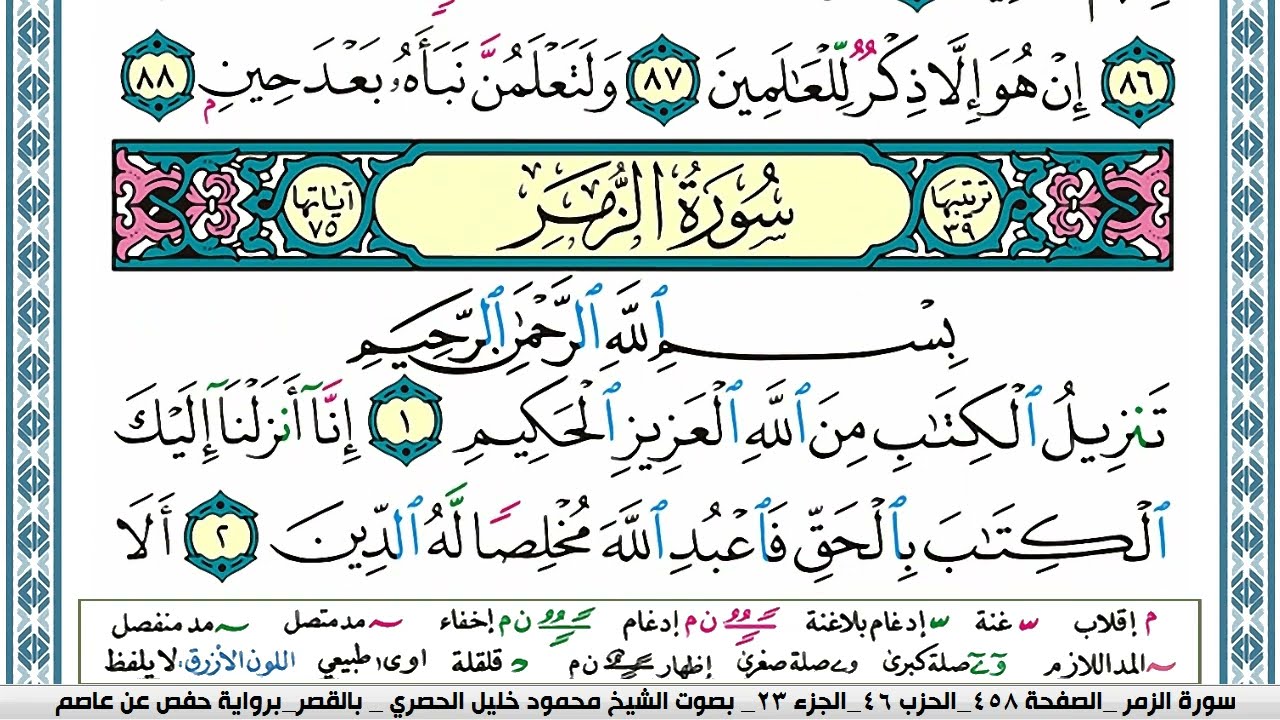 ٨٦ إِنْ هُوَ إِلَّا ذِكْرٌ لِّلْعَٰلَمِينَ ٨٧ وَلَتَعْلَمُنَّ نَبَأَهُۥ بَعْدَ حِينِۭ ٨٨
ترتيبها ٣٩ سُورَةُ الزُّمَرِ آياتها ٧٥
بِسْمِ ٱللَّهِ ٱلرَّحْمَٰنِ ٱلرَّحِيمِ
تَنزِيلُ ٱلْكِتَٰبِ مِنَ ٱللَّهِ ٱلْعَزِيزِ ٱلْحَكِيمِ ١ إِنَّآ أَنزَلْنَآ إِلَيْكَ
ٱلْكِتَٰبَ بِٱلْحَقِّ فَٱعْبُدِ ٱللَّهَ مُخْلِصًا لَّهُ ٱلدِّينَ ٢ أَلَا
م إقلاب س غنة س إدغام بلاغنة ن م إدغام ن م إخفاء ~ مد متصل ~ مد منفصل
~ المد اللازم و ے صلة كبرى و ے صلة صغرى إظهار ن م د قلقلة اوى، طبيعي اللون الأزرق، لا يلفظ
سورة الزمر _الصفحة ٤٥٨_الحزب ٤٦_الجزء ٢٣_ بصوت الشيخ محمود خليل الحصري _ بالقصر_برواية حفص عن عاصم